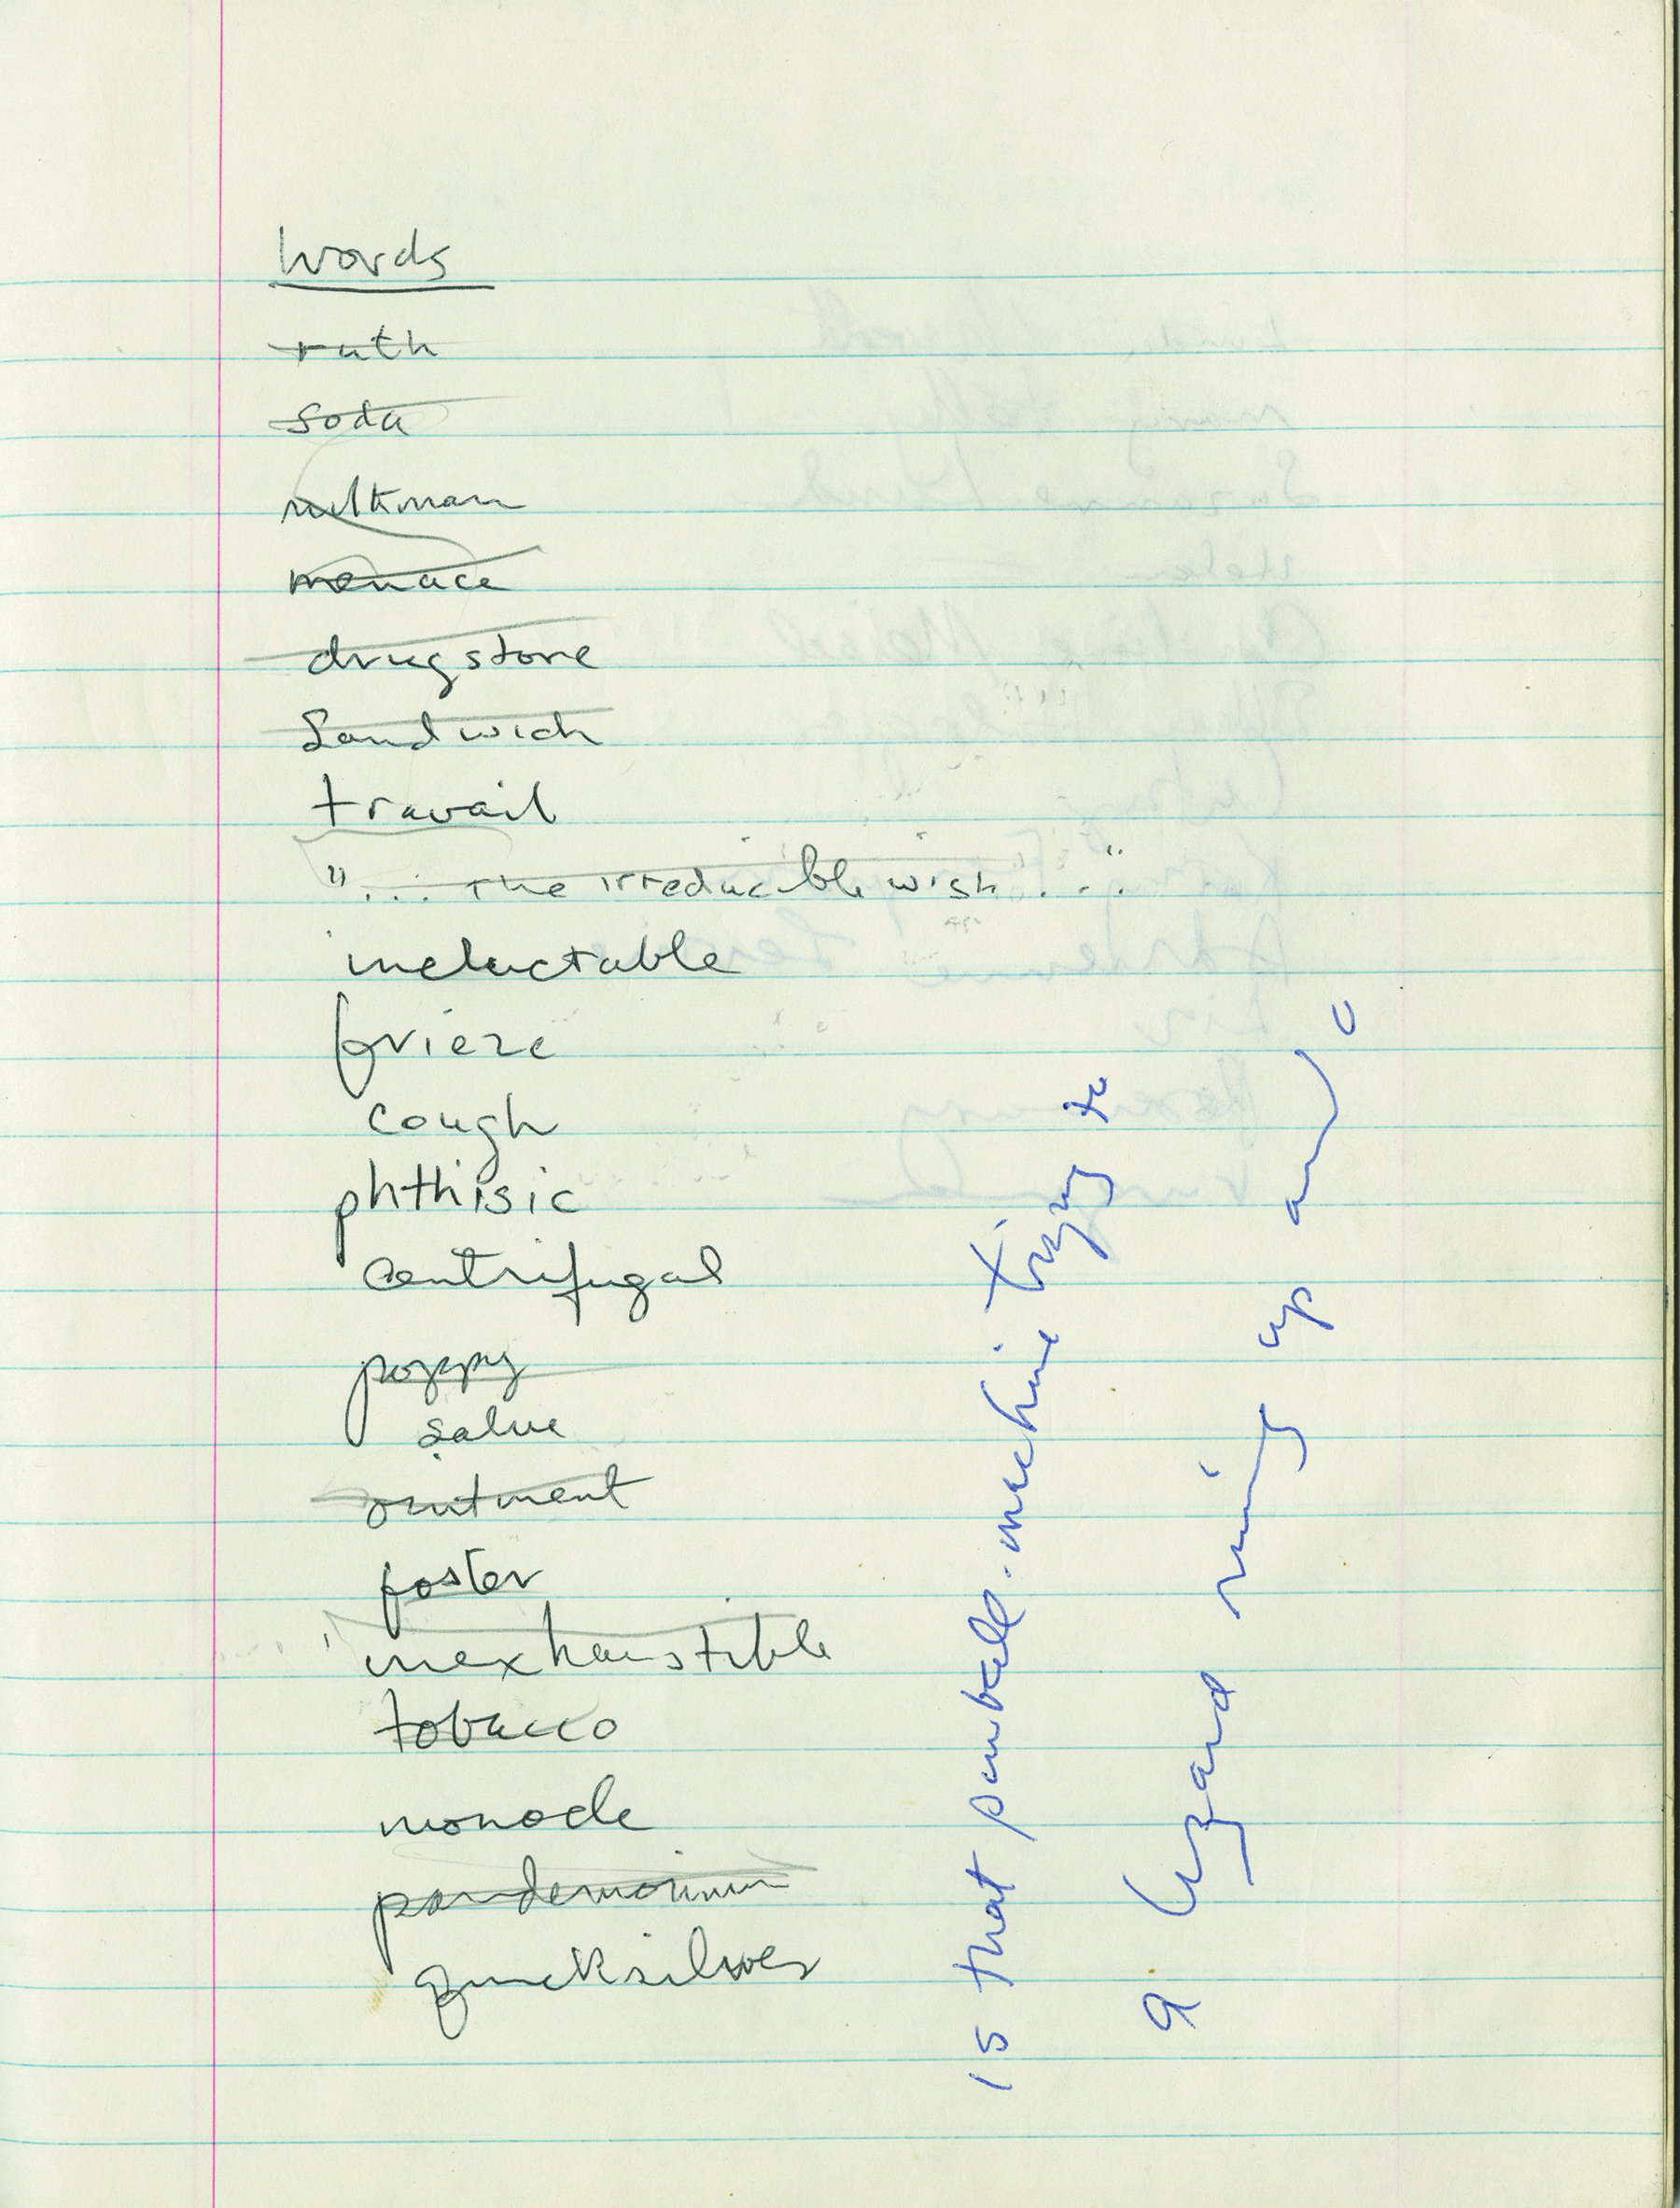 Words
ruth
soda
milkman
menace
drugstore
Sandwich
travail
"... the irreducible wish ..."
ineluctable
frieze
cough
phthisic
centrifugal
poppy
salve
ointment
foster
inexhaustible
tobacco
monocle
pandemonium
quicksilver
is that pinball-machine trying to
a lizard running up and